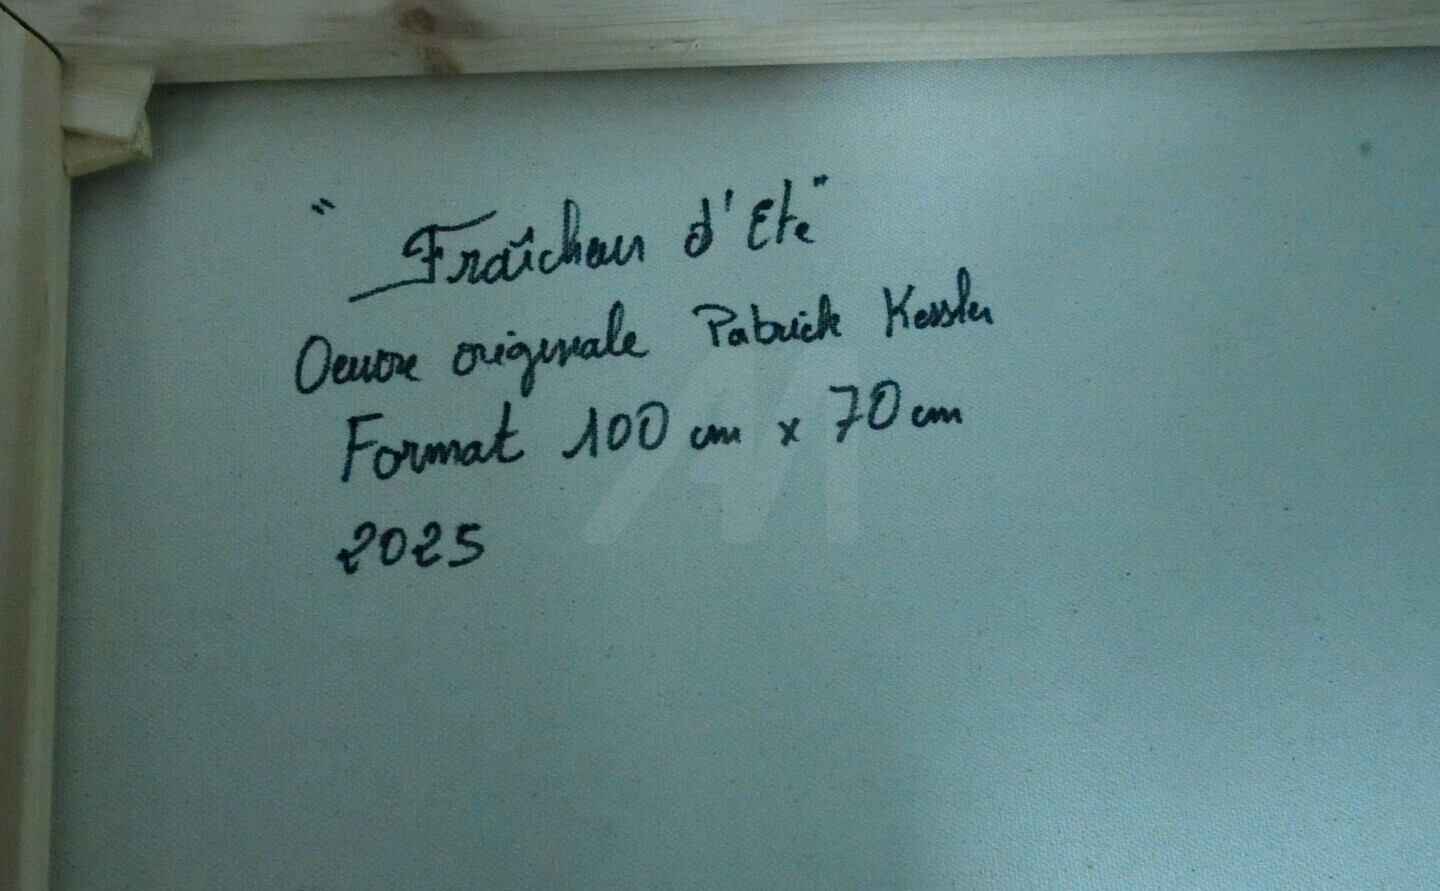 "Fraîcheur d'Ete"
Oeuvre originale Patrick Kessler
Format 100 cm x 70 cm
2025